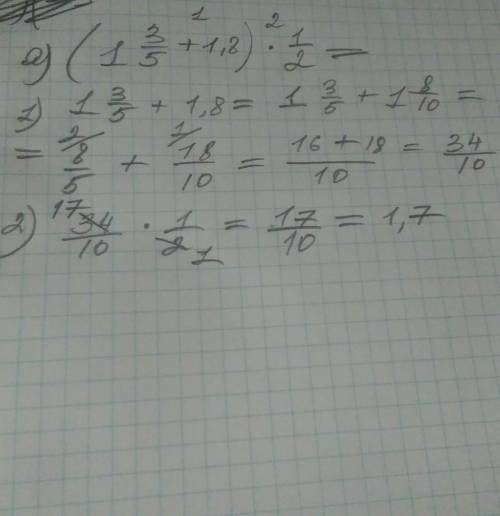 а) (1 3/5 + 1,8) · 1/2 =
1) 1 3/5 + 1,8 = 1 3/5 + 1 8/10 =
= 8/5 + 18/10 = 16 + 18/10 = 34/10
2) 34/10 · 1/2 = 17/10 = 1,7